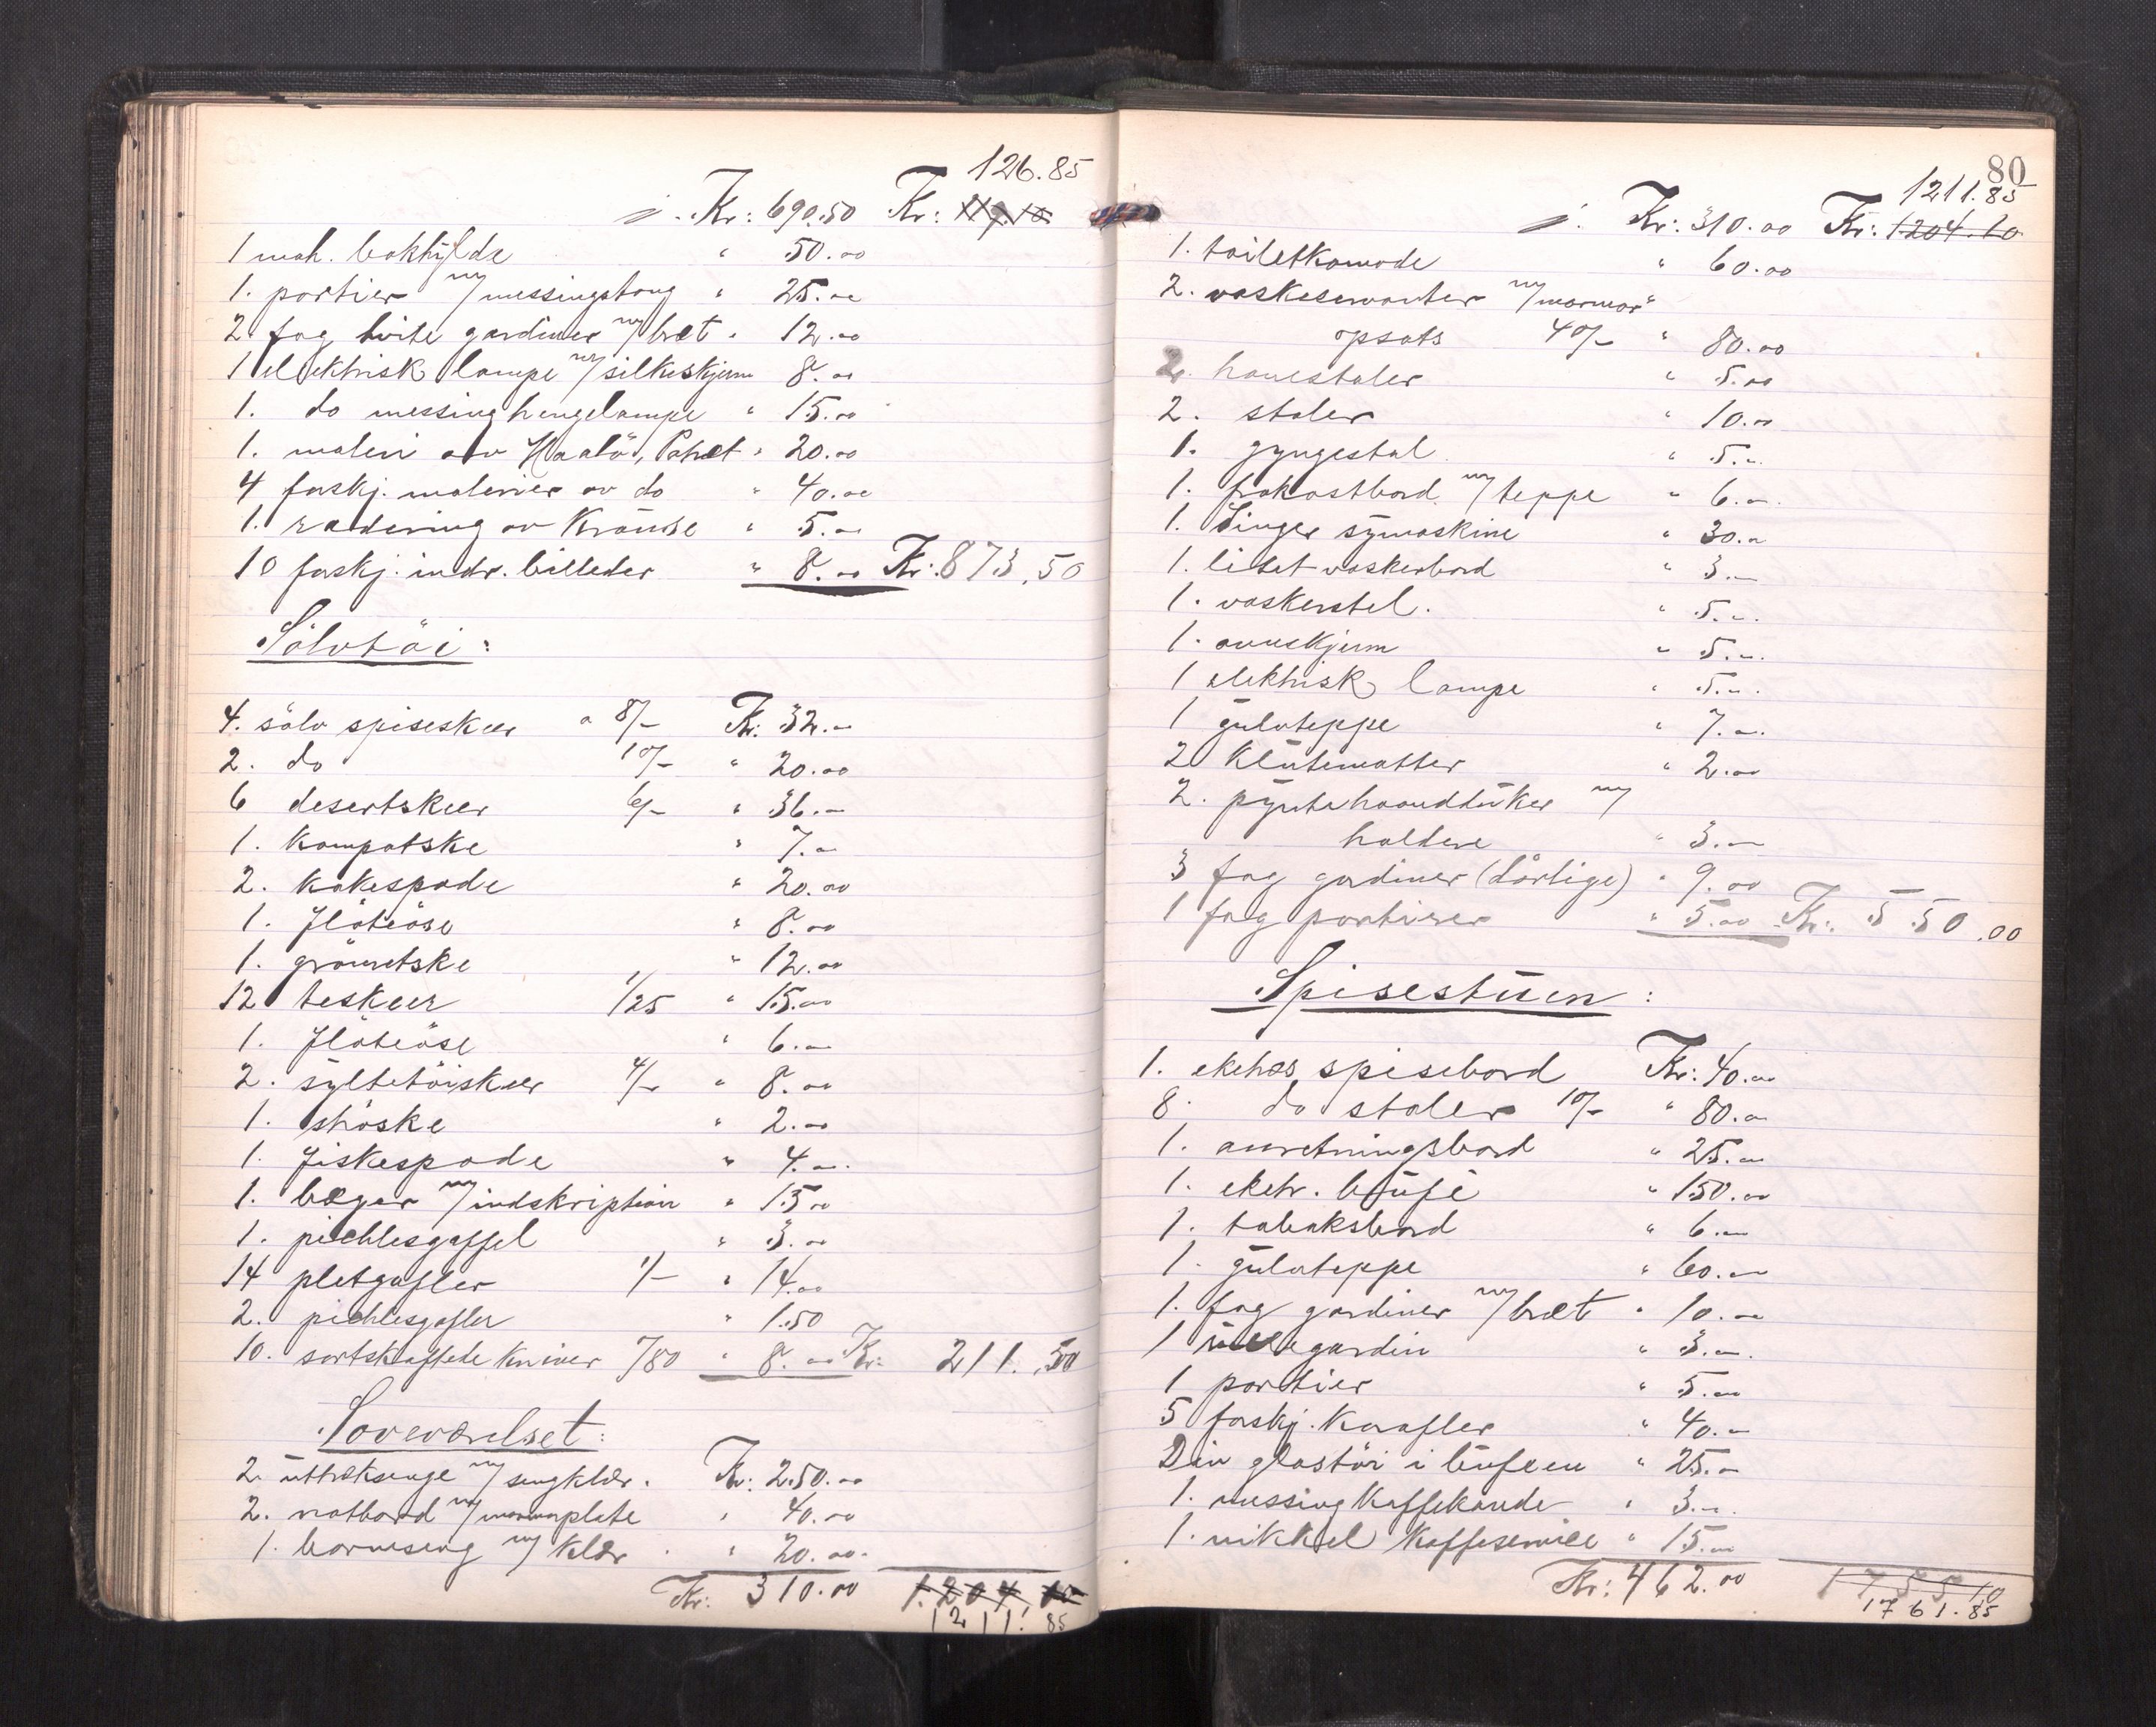 126.85
Kr: 690.50 Kr: 119.10
1 mah. bokhylde " 50.00
1. portier m/ messingstang " 25.00
2 fag hvite gardiner m/ bret " 12.00
1 elektrisk lampe m/ silkeskjerm 8.00
1. do messing hengelampe " 15.00
1. maleri av " 20.00
4 forskj. malerier av do " 40.00
1. radering av " 5.00
10 forskj. indr. billeder " 8.00 Kr: 873.50
Sölvtöi:
4. sölv spiseskeer a 8/- Kr: 32.00
2. do 10/- " 20.00
6 desertskeer 6/- " 36.00
1. kompotske " 7.00
2. kakespade " 20.00
1. flöteöse " 8.00
1. grönsetske " 12.00
12 teskeer 1/25 " 15.00
1. flöteöse " 6.00
2. syltetöiskeer 4/- " 8.00
1. ströske " 2.00
1. fiskespade " 4.00
1. beger m/ indskription " 15.00
1. pichlesgaffel " 3.00
14 pletgafler 1/- " 14.00
2. pichlesgafler " 1.50
10. sortskaftede kniver /80 " 8.00 Kr: 211.50
Soveværelset:
2. uttræksenge m/ sengklær. Kr: 250.00
2. natbord m/ marmorplate " 40.00
1. barneseng m/ klær " 20.00
Kr: 310.00 1.204 10
1211.85
80
1211.85
Kr: 310.00 Kr: 1204.10
1. toiletkomode " 60.00
2. vaskeservanter m/ marmor"
opsats 40/- " 80.00
2. havestoler " 5.00
2. stoler " 10.00
1. gyngestol " 5.00
1. frokostbord m/ teppe " 6.00
1. Singer symaskine " 30.00
1. litet vaskerbord " 3.00
1. vaskerstel. " 5.00
1. ovnskjerm " 5.00
1 elektrisk lampe " 5.00
1 gulvteppe " 7.00
2 klutematter " 2.00
2. pyntehaandduker m/
holdere " 3.00
3 fag gardiner (dårlige) " 9.00
1 fag portierer " 5.00 Kr: 550.00
Spisestuen:
1. eketræs spisebord Kr: 40.00
8. do stoler 10/- " 80.00
1. anretningsbord " 25.00
1. eketr. büfé " 150.00
1. tobaksbord " 6.00
1. gulvteppe " 60.00
1. fag gardiner m/ bret " 10.00
1 rullegardin " 3.00
1 portier " 5.00
5 forskj. karafler " 40.00
Div glastöi i büfeen " 25.00
1. messing kaffekande " 3.00
1. nikkel kaffeservice " 15.00
Kr: 462.00 1755 10
1761.85